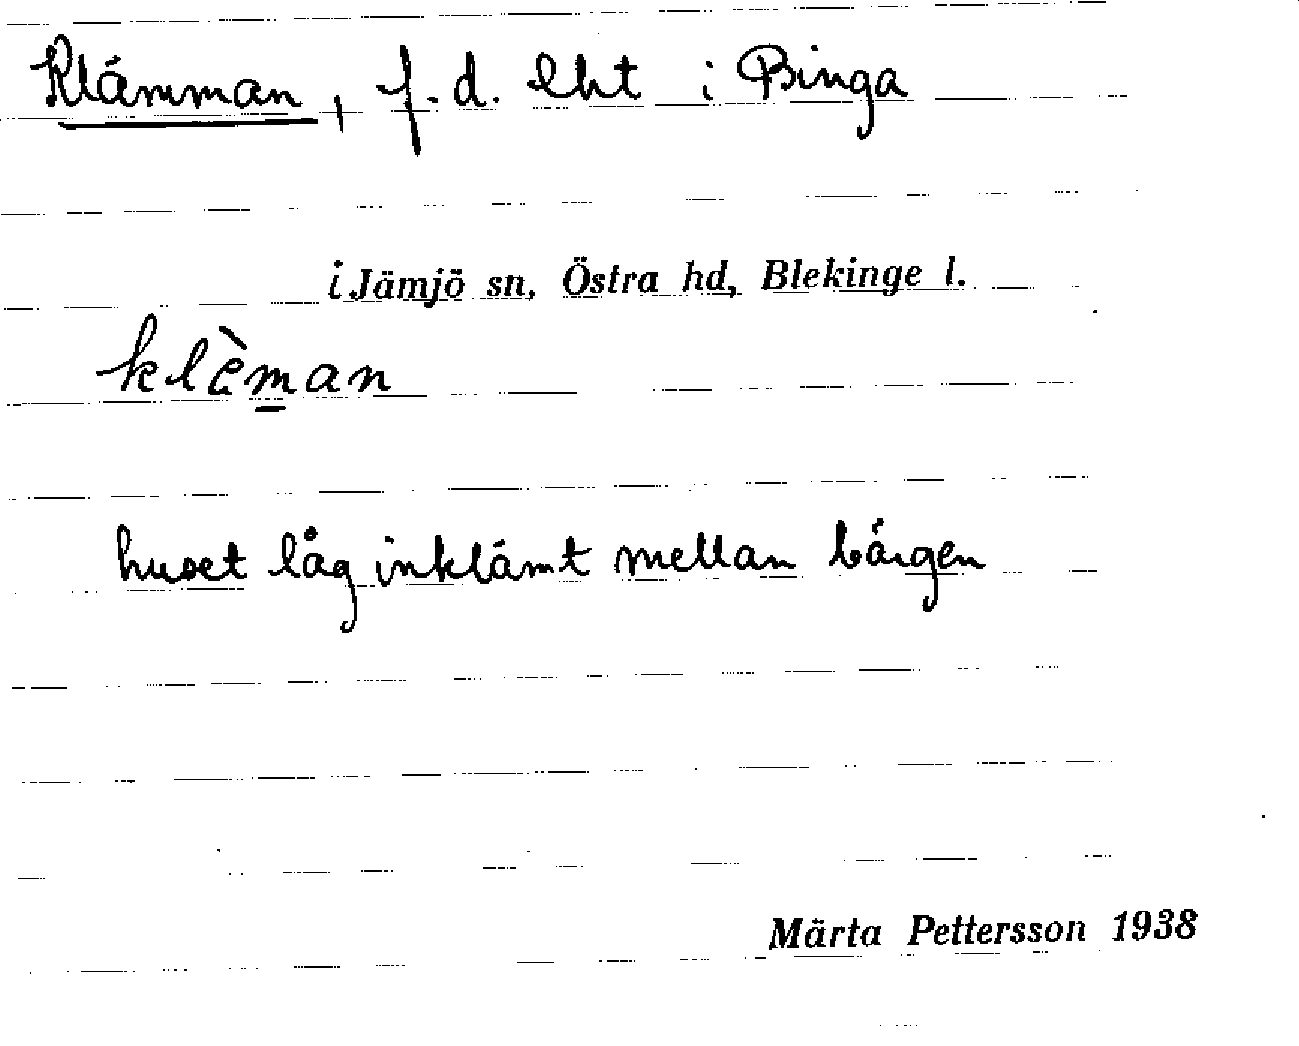 Klämman, f. d. lht i Binga
i Jämjö sn, Östra hd, Blekinge l.
klèman
huset låg inklämt mellan bärgen
Märta Pettersson 1938